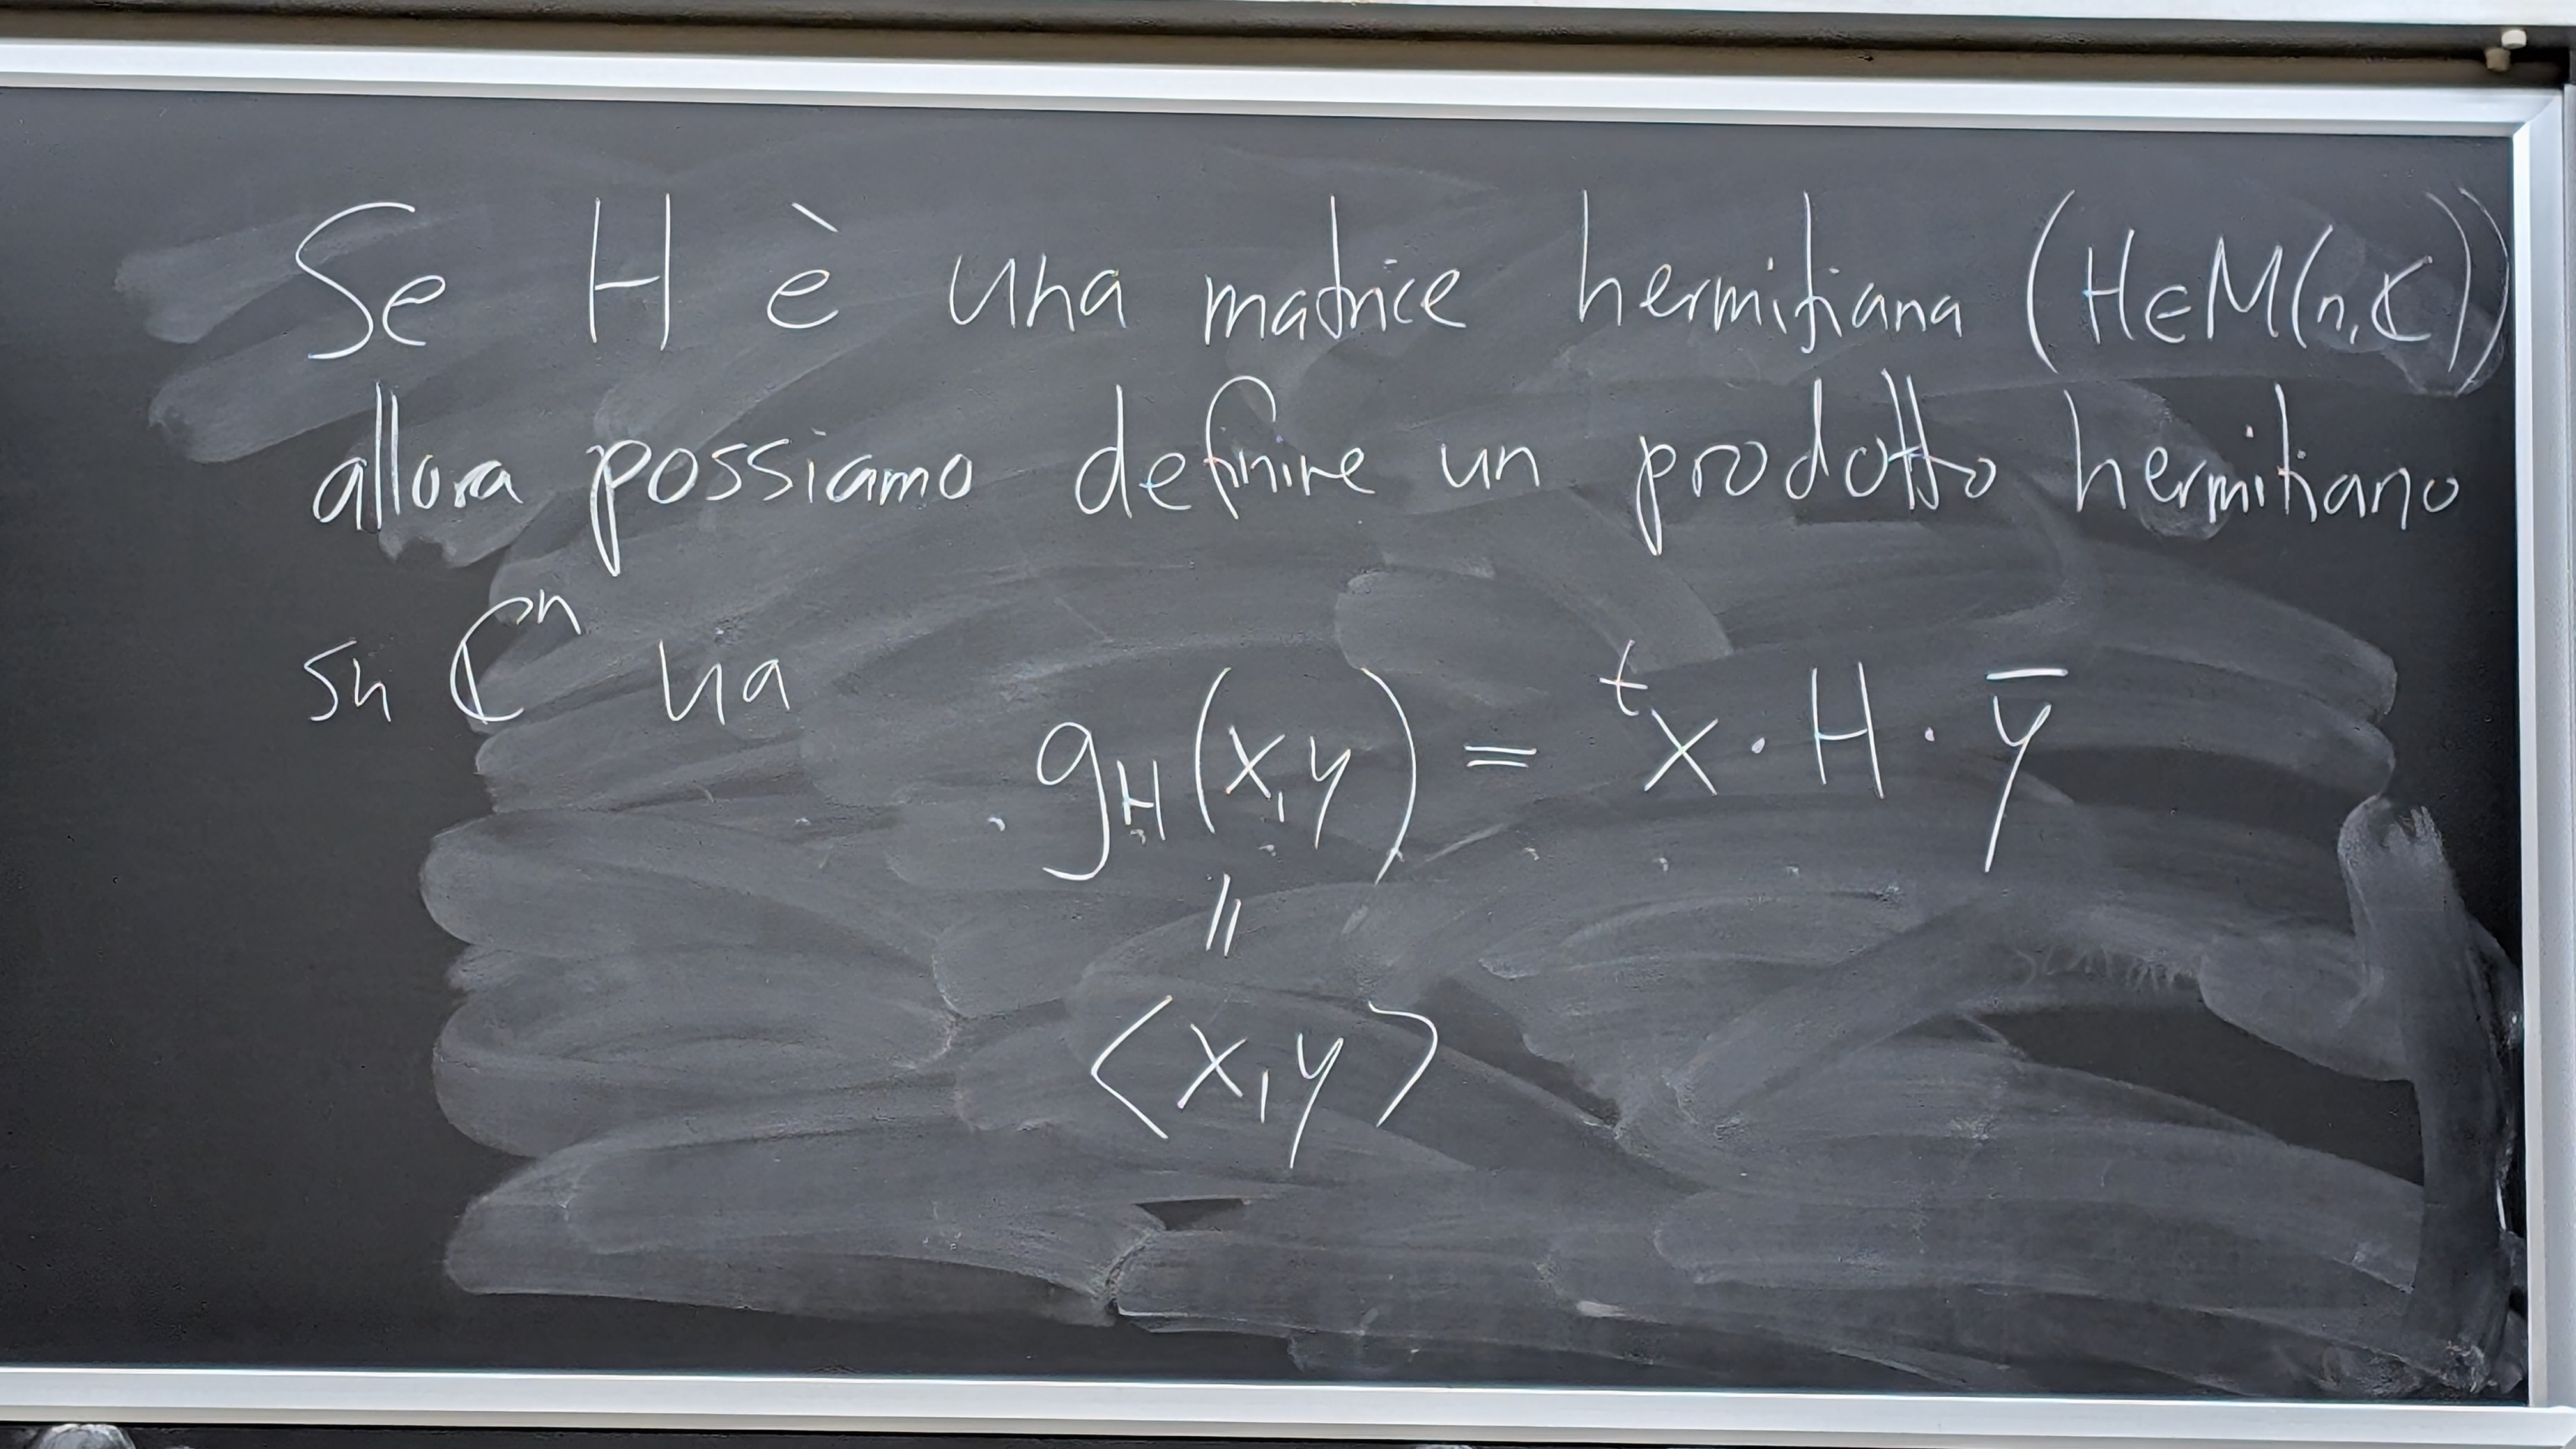 Se H è una matrice hermitiana (H∈M(n,ℂ))
allora possiamo definire un prodotto hermitiano
su ℂⁿ via
g_H(x,y) = ᵗx · H · ȳ
||
⟨x,y⟩